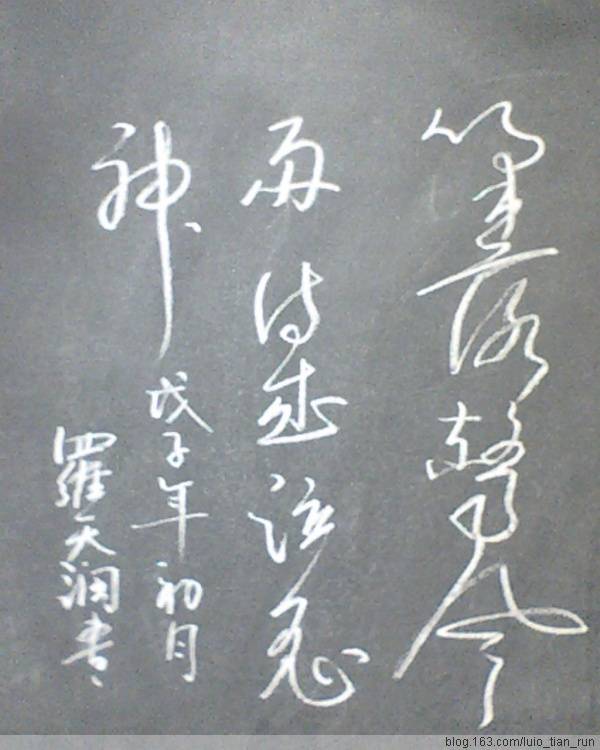 筆落驚风
雨诗成泣鬼
神
戊子年初月
羅天润書
blog.163.com/luio_tian_run